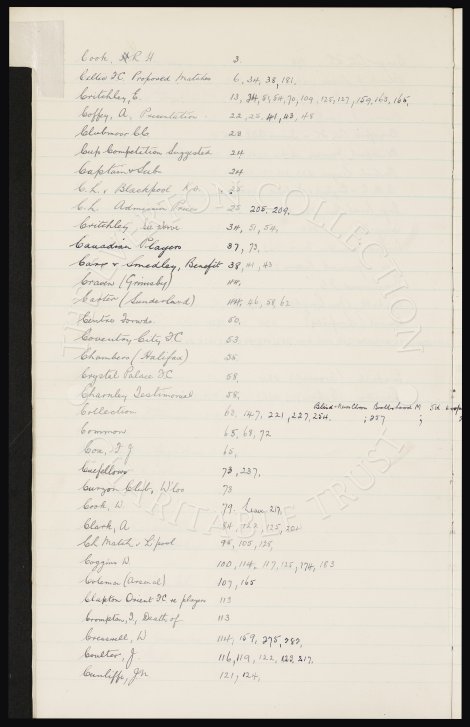 Cook, R H 3.
Celtic FC Proposed Matches 6, 34, 38, 181.
Critchley, E. 13, 34, 51, 54, 70, 109, 125, 127, 159, 163, 165.
Coffey, A, Presentation. 22, 25, 41, 43, 48
Clubmoor CC 23
Cup Competition Suggested 24
Captain & Sub 24
C.L. v Blackpool 25
C.L. Admission Prices 25 205, 209.
Critchley, see above 34, 51, 54,
Canadian Players 37, 73,
Carr & Smedley, Benefit 38, 41, 43
Craven (Grimsby) 44,
Carter (Sunderland) 44, 46, 58, 62
Centre Forwds. 50,
Coventry City FC 53
Chambers (Halifax) 55
Crystal Palace FC 58,
Charnley Testimonial 58,
Collection 62, 147, 221, 227, 254. ; 257 ;
Common 65, 68, 72
Cox, 65,
Cuefellows 73, 237,
Curzon Club, W'loo 73
Cook, W. 79. Lease 217,
Clark, A 84, 122, 125, 202
CL Match v L'pool 95, 105, 125,
Coggins W 100, 114, 117, 125, 174, 183
Coleman (Arsenal) 107, 165
Clapton Orient FC re players 113
Crompton, J, Death of 113
Cresswell, W 114, 159, 275, 282,
Coulter, J 116, 119, 122, 217.
Cunliffe, JN 121, 124,
THE COLLECTION
CHARITABLE TRUST